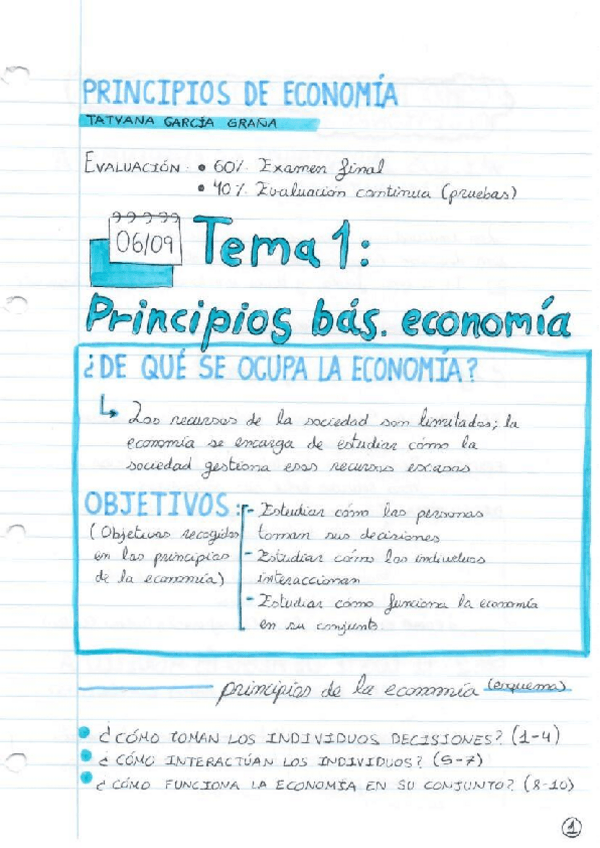 PRINCIPIOS DE ECONOMÍA
TATYANA GARCÍA GRAÑA
EVALUACIÓN: • 60% Examen final
• 40% Evaluación continua (pruebas)
06/09 Tema 1:
Principios bás. economía
¿DE QUÉ SE OCUPA LA ECONOMÍA?
↳ Los recursos de la sociedad son limitados; la
economía se encarga de estudiar cómo la
sociedad gestiona esos recursos escasos
OBJETIVOS: - Estudiar cómo las personas
(Objetivos recogidos toman sus decisiones
en los principios - Estudiar cómo los individuos
de la economía) interaccionan
- Estudiar cómo funciona la economía
en su conjunto.
principios de la economía (esquema)
• ¿CÓMO TOMAN LOS INDIVIDUOS DECISIONES? (1-4)
• ¿CÓMO INTERACTÚAN LOS INDIVIDUOS? (5-7)
• ¿CÓMO FUNCIONA LA ECONOMÍA EN SU CONJUNTO? (8-10)
1